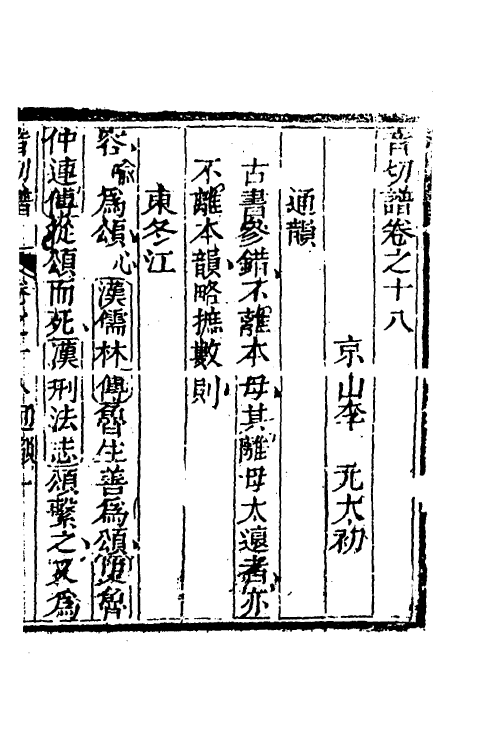 音切譜卷之十八
京山李元太初
通韻
古書參錯不離本母其離母太遠者亦
不離本韻略摭數則
東冬江
容喻爲頌心漢儒林傳魯生善爲頌從魯
仲連傳從頌而死漢刑法志頌繫之又爲
音切譜 卷之十八